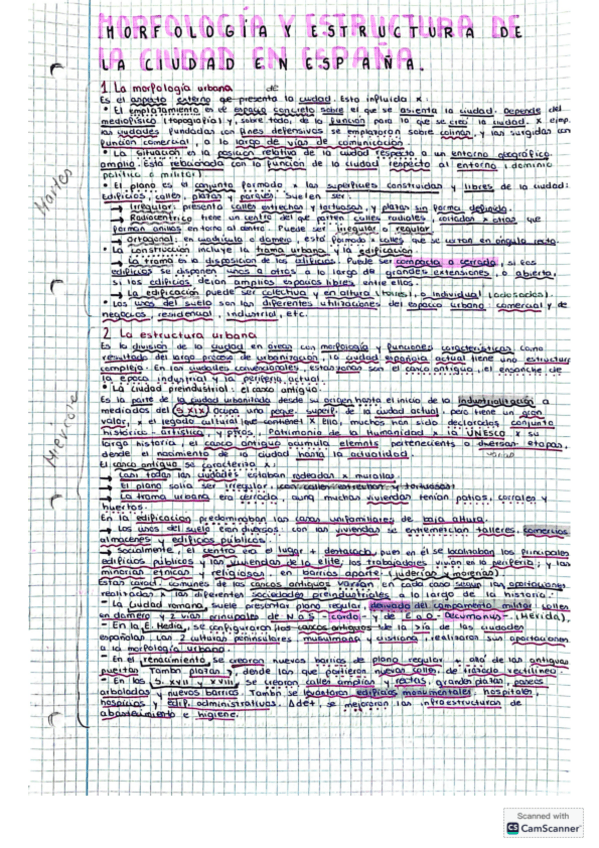 MORFOLOGÍA Y ESTRUCTURA DE
LA CIUDAD EN ESPAÑA.
1 La morfología urbana
Es el aspecto externo que presenta la ciudad. Esta influida x:
• El emplazamiento es el espacio concreto sobre el que se asienta la ciudad. Depende del
medio físico (topografía) y, sobre todo, de la función para la que se creó la ciudad. X ejmp.
las ciudades fundadas con fines defensivos se emplazaron sobre colinas, y las surgidas con
función comercial, a lo largo de vías de comunicación
• La situación es la posición relativa de la ciudad respecto a un entorno geográfico
amplio. Está relacionada con la función de la ciudad respecto al entorno (dominio
político o militar).
Martes
• El plano es el conjunto formado x las superficies construidas y libres de la ciudad:
Edificios, calles, plazas y parques. Suelen ser:
→ Irregular, presenta calles estrechas y tortuosas, y plazas sin forma definida.
→ Radiocéntrico tiene un centro del que parten calles radiales, cortadas x otras que
forman anillos en torno al centro. Puede ser irregular o regular
→ Ortogonal: en cuadrícula o damero, está formado x calles que se cortan en ángulo recto.
• La construcción incluye la trama urbana, y la edificación.
→ La trama es la disposición de los edificios. Puede ser compacta o cerrada, si los
edificios se disponen unos a otros a lo largo de grandes extensiones, o abierta,
si los edificios dejan amplios espacios libres entre ellos.
→ La edificación puede ser colectiva y en altura (torres), o individual
• Los usos del suelo son las diferentes utilizaciones del espacio urbano: comercial y de
negocios, residencial, industrial, etc.
2 La estructura urbana
Es la división de la ciudad en áreas con morfología y funciones características. Como
resultado del largo proceso de urbanización, la ciudad española actual tiene una estructura
compleja. En las ciudades convencionales, estas zonas son el casco antiguo, el ensanche de
la época industrial y la periferia actual.
• La ciudad preindustrial: el casco antiguo.
Es la parte de la ciudad urbanizada desde su origen hasta el inicio de la industrialización a
mediados del S XIX. Ocupa una peque. superf. de la ciudad actual, pero tiene un gran
valor, x el legado cultural que contiene. X ello, muchos han sido declarados conjunto
histórico - artístico, y Patrimonio de la Humanidad x la UNESCO. X su
larga historia, el casco antiguo acumula elemnts pertenecients a diversas etapas,
desde el nacimiento de la ciudad hasta la actualidad.
Miércoles
El casco antiguo se caracteriza x:
→ Casi todas las ciudades estaban rodeadas x murallas.
→ El plano solía ser irregular, con calles estrechas y tortuosas.
→ La trama urbana era cerrada, aunq muchas viviendas tenían patios, corrales y
huertos.
En la edificación predominaban las casas unifamiliares de baja altura.
→ Los usos del suelo eran diversos: con las viviendas se entremezclan talleres, comercios,
almacenes y edificios públicos.
→ Socialmente, el centro era el lugar + destacado, pues en él se localizaban los principales
edificios públicos y las viviendas de la élite, los trabajadores vivían en la periferia; y las
minorías étnicas y religiosas en barrios aparte (juderías x morerías).
Estas caract. comunes de los cascos antiguos varían en cada caso según las aportaciones
realizadas x las diferentes sociedades preindustriales a lo largo de la historia:
- La ciudad romana, suele presentar plano regular, derivado del campamento militar: calles
en damero y 2 vías principales de N a S - cardo - y de E a O - decumanus -. (Mérida).
- En la E. Media, se configuraron los cascos antiguos de la de las ciudades
españolas. Las 2 culturas peninsulares, musulmana y cristiana, realizaron sus aportaciones
a la morfología urbana.
- En el renacimiento, se crearon nuevos barrios de plano regular + allá de las antiguas
puertas. Tambn plazas y, desde las que partieron nuevas calles de trazado rectilíneo.
- En los S. XVII y XVIII se crearon calles amplias y rectas, grandes plazas, paseos
arbolados y nuevos barrios. Tambn se levantaron edificios monumentales, hospitales,
hospicios y edif. administrativos. Adet, se mejoraron las infraestructuras de
abastecimiento e higiene.
Scanned with
CS CamScanner